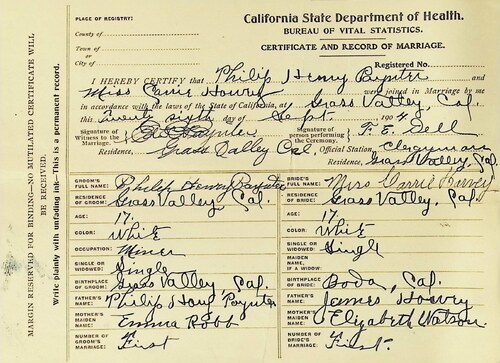 PLACE OF REGISTRY:
County of
Town of
or
City of
California State Department of Health.
BUREAU OF VITAL STATISTICS.
CERTIFICATE AND RECORD OF MARRIAGE.
Registered No.
I HEREBY CERTIFY that Philip Henry Paynter and
Miss Carrie Harvey were joined in Marriage by me
in accordance with the laws of the State of California, at Grass Valley, Cal.
this Twenty sixth day of Sept. 190
Signature of Witness to the Marriage
Paynter
Signature of person performing the Ceremony. F. E. Dell
Residence, Grass Valley Cal. Official Station, Clergyman
Residence, Grass Valley, Cal.
GROOM'S FULL NAME: Philip Henry Paynter
BRIDE'S FULL NAME: Miss Carrie Harvey
RESIDENCE OF GROOM: Grass Valley, Cal.
RESIDENCE OF BRIDE: Grass Valley, Cal.
AGE: 17.
AGE: 17.
COLOR: White
COLOR: White
OCCUPATION: Miner
SINGLE OR WIDOWED: Single
SINGLE OR WIDOWED: Single
MAIDEN NAME, IF A WIDOW:
BIRTHPLACE OF GROOM: Grass Valley, Cal.
BIRTHPLACE OF BRIDE: Cal.
FATHER'S NAME: Philip Paynter
FATHER'S NAME: James
MOTHER'S MAIDEN NAME: Emma Robb
MOTHER'S MAIDEN NAME: Elizabeth Watson.
NUMBER OF GROOM'S MARRIAGE: First
NUMBER OF BRIDE'S MARRIAGE: First
MARGIN RESERVED FOR BINDING—NO MUTILATED CERTIFICATE WILL
BE RECEIVED.
Write plainly with unfading ink—This is a permanent record.